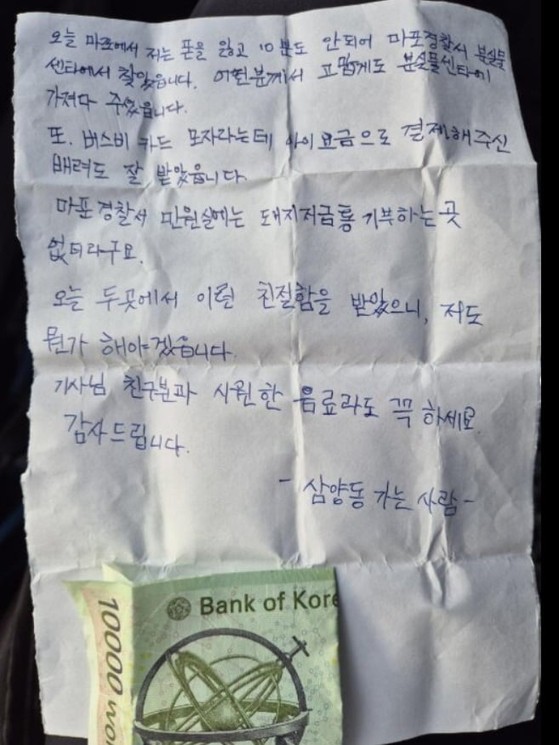 오늘 마포에서 저는 폰을 잃고 10분도 안되어 마포경찰서 분실물
센타에서 찾았습니다. 어떤분께서 고맙게도 분실물센타에
가져다 주셨습니다.
또. 버스비 카드 모자라는데 아이요금으로 결제해주신
배려도 잘 받았습니다.
마포경찰서 민원실에는 돼지저금통 기부하는 곳
없더라구요.
오늘 두곳에서 이런 친절함을 받았으니, 저도
뭔가 해야겠습니다.
기사님 친구분과 시원한 음료라도 꼭 하세요
감사드립니다.
- 삼양동 가는 사람 -
Bank of Kore
10000 won